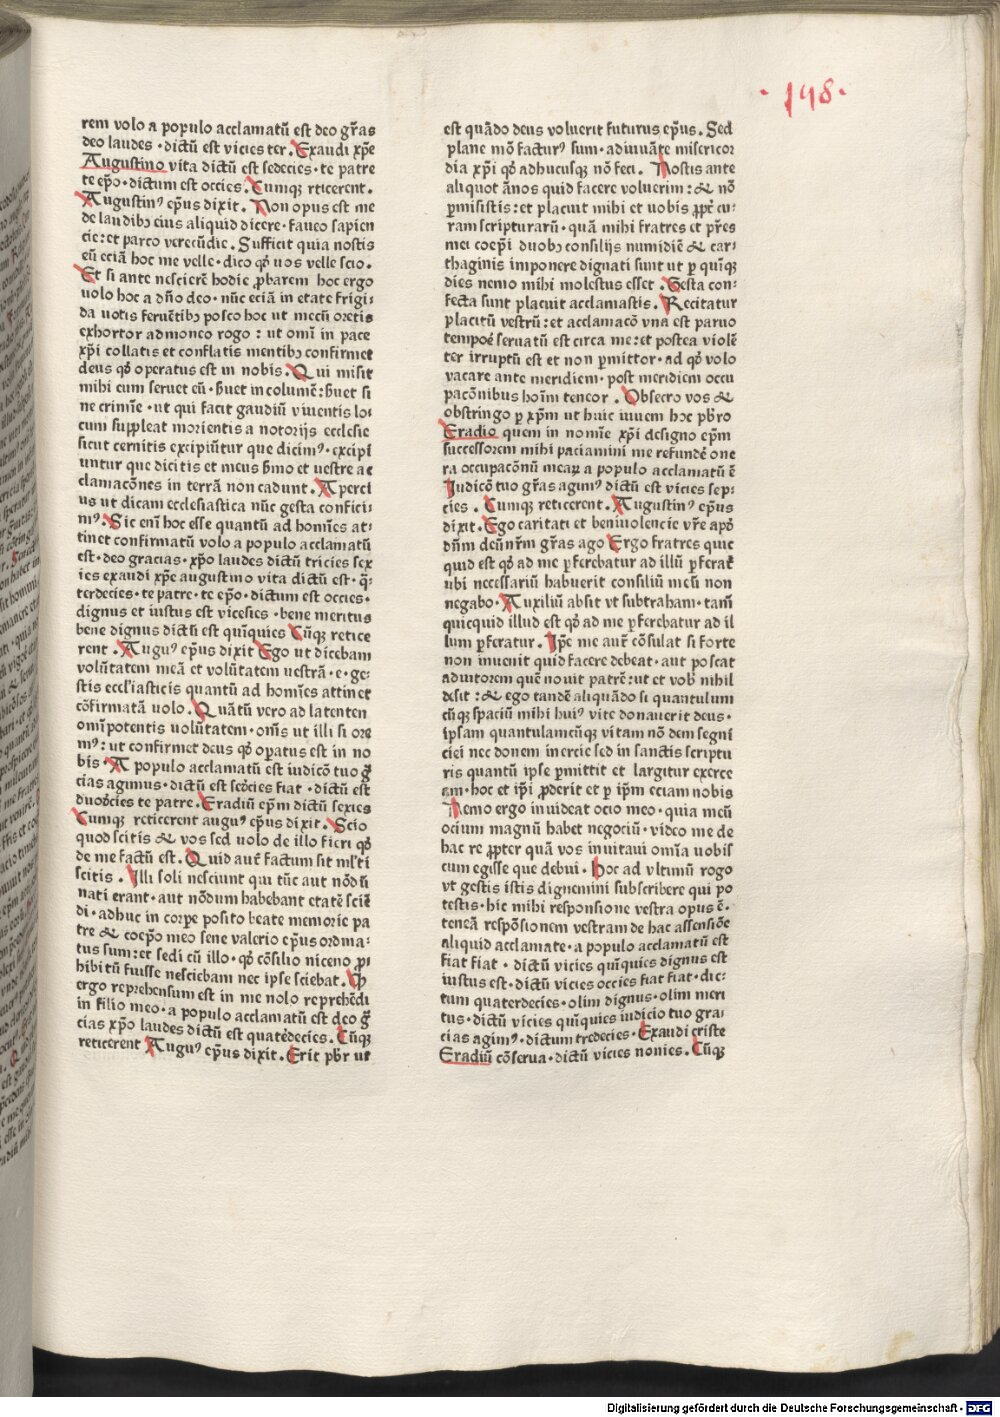 ·198·
rem volo a populo acclamatū est deo gr̄as
deo laudes · dictū est vicies ter. Exaudi xp̄e
Augustino vita dictū est sedecies · te patre
te ep̄o · dictum est occies. Cumqꝫ rticerent.
Augustinꝰ ep̄us dixit. Non opus est me
de laudibꝫ eius aliquid dicere · faueo sapien
cie: et parco verecūdie. Sufficit quia nostis
eū eciā hoc me velle · dico qď uos velle scio.
Et si ante nescierē hodie ꝓbarem hoc ergo
uolo hoc a dn̄o deo · nūc eciā in etate frigi:
da uotis feruētibꝫ posco hoc ut mecū oretis
exhortor admoneo rogo : ut om̄i in pace
xp̄i collatis et conflatis mentibꝫ confirmet
deus qď operatus est in nobis. Qui misit
mihi eum seruet eū · ƀuet incolumē: ƀuet si
ne crimīe · ut qui facit gaudiū viuentis lo:
cum suppleat morientis a notorijs ecclesie
sicut cernitis excipiūtur que dicimꝰ · excipi
untur que dicitis et meus ẜmo et uestre ac
clamacōnes in terrā non cadunt. Aperci
us ut dicam ecclesiastica nūc gesta confici:
mꝰ. Sic eni hoc esse quantū ad homīes at:
tinet confirmatū volo a populo acclamatū
est · deo gracias · xp̄o laudes dictū tricies sex
ies exaudi xp̄e augustino vita dictū est · q̄:
terdecies · te patre · te ep̄o · dictum est occies ·
dignus et iustus est vicesies · bene meritus
bene dignus dictū est quīquies Cūqꝫ retice
rent . Auguꝰ ep̄us dixit Ego ut dicebam
volūtatem meā et volūtatem uestrā · e · ge:
stis eccl'iasticis quantū ad homīes attinet
cōfirmatā uolo. Quātū vero ad latenten
om̄ipotentis uolūtatem · om̄s ut illi si ore
mꝰ: ut confirmet deus qď opatus est in no
bis. A populo acclamatū est iudicō tuo g̃
cias agimus · dictū est sedecies fiat · dictū est
duodecies te patre. Eradiū ep̄m dictū sexies
Cumqꝫ reticerent auguꝰ ep̄us dixit. Scio
quod scitis & vos sed uolo de illo fieri qď
de me factū est. Quid aut̄ factum sit ml'ti
scitis . Illi soli nesciunt qui tūc aut nōdū
nati erant · aut nōdum habebant etatē sciē
di · adhuc in corpe posito beate memorie pa
tre & coep̄o meo sene valerio ep̄us ordina:
tus sum: et sedi cū illo · qď cōsilio niceno ꝓ
hibitū fuisse nesciebam nec ipse sciebat.
ergo reprehensum est in me nolo reprehēdi
in filio meo · a populo acclamatū est deo g̃
cias xp̄o laudes dictū est quatēdecies. Cūqꝫ
reticerent Auguꝰ ep̄us dixit. Erit pƀr ut
est quādo deus voluerit futurus ep̄us. Sed
plane mō facturꝰ sum · adiuuāte misericor
dia xp̄i qď adhucusqꝫ nō feci. Nostis ante
aliquot ānos quid facere voluerim : & nō
ꝑmisistis: et placuit mihi et uobis ꝓpt̄ cu:
ram scripturarū · quā mihi fratres et pr̄es
mei coep̄i duobꝫ consilijs numidiē & car:
thaginis imponere dignati sunt ut ꝑ quīqꝫ
dies nemo mihi molestus esset . Gesta con:
fecta sunt placuit acclamastis. Recitatur
placitū vestrū: et acclamacō vna est paruo
tempore seruatū est circa me: et postea violē
ter irruptū est et non ꝑmittor · ad qď volo
vacare ante meridiem · post meridiem occu
pacōnibus hoīm teneor . Obsecro vos &
obstringo ꝑ xp̄m ut huic iuueni hoc pƀro
Eradio quem in nomīe xp̄i designo ep̄m
successorem mihi paciamini me refundē one
ra occupacōnū meaꝝ a populo acclamatū ē
Iudicō tuo gr̄as agimꝰ dictū est vicies sep:
cies . Cumqꝫ reticerent. Augustinꝰ ep̄us
dixit. Ego caritati et beniuolencie vr̄e apď
dn̄m deū nr̄m gr̄as ago Ergo fratres que
quid est qď ad me ꝑferebatur ad illū ꝑferat̄
ubi necessariū habuerit consiliū meū non
negabo. Auxiliū absit vt subtraham · tam̄
quicquid illud est qď ad me ꝑferebatur ad il
lum ꝑferatur . Ip̄e me aut̄ cōsulat si forte
non inuenit quid facere debeat · aut poscat
adiutorem quē nouit patrē: ut et vob̄ nihil
desit : & ego tandē aliquādo si quantulum
cūqꝫ spaciū mihi huiꝰ vite donauerit deus ·
ipsam quantulamcūqꝫ vitam nō dem segni
ciei nec donem inercie sed in sanctis scriptu
ris quantū ipse ꝑmittit et largitur exerce
am · hoc et ip̄i ꝓderit et ꝑ ip̄m eciam nobis
Nemo ergo inuideat ocio meo · quia meū
ocium magnū habet negociū · video me de
hac re ꝓpter quā vos inuitaui omīa uobis
cum egisse que debui . Hoc ad vltimū rogo
vt gestis istis dignemini subscribere qui po
testis · hic mihi responsione vestra opus ē ·
teneā respōsionem vestram de hac assensiōe
aliquid acclamate · a populo acclamatū est
fiat fiat · dictū vicies quīquies dignus est
iustus est · dictū vicies occies fiat fiat · dic:
tum quaterdecies · olim dignus · olim meri
tus · dictū vicies quīquies iudicio tuo gra:
cias agimꝰ · dictum tredecies · Exaudi criste
Eradiū cōserua · dictū vicies nonies. Cūqꝫ
Digitalisierung gefördert durch die Deutsche Forschungsgemeinschaft - DFG